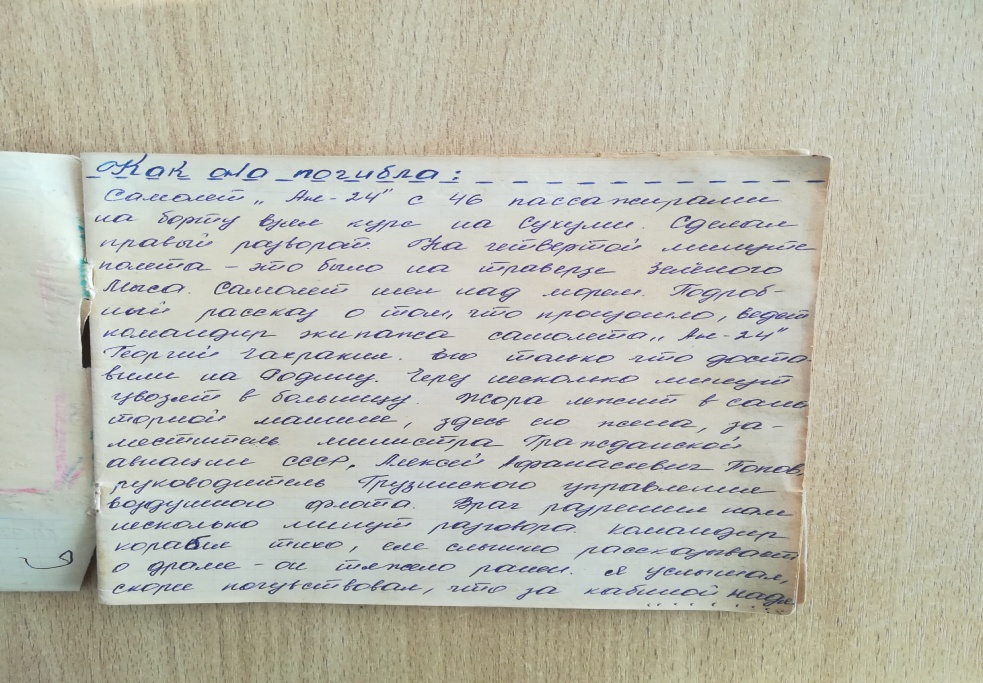 Как она погибла:
Самолет „Ан-24" с 46 пассажирами
на борту взял курс на Сухуми. Сделал
правый разворот. На четвертой минуте
полета - это было на траверзе Зелёного
Мыса. Самолет шел над морем. Подроб-
ный рассказ о том, что произошло, ведет
командир экипажа самолета „Ан-24"
Георгий Чахракия. Его только что доста-
вили на Родину. Через несколько минут
увезут в больницу. Жора лежит в сани-
торной машине, здесь его жена, за-
меститель министра Гражданской
авиации СССР, Алексей Афанасиевич Попов,
руководитель Грузинского управления
воздушного флота. Враг разрешил нам
несколько минут разговора. Командир
корабля тихо, еле слышно рассказывает
о драме - он тяжело ранен. Я услышал,
скорее почувствовал, что за кабиной Надя